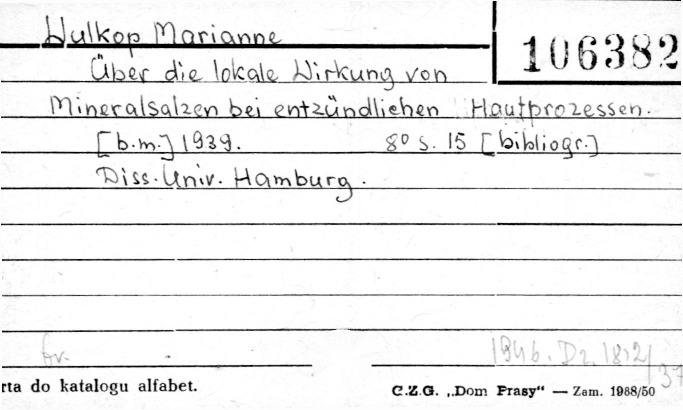 Wulkop Marianne
106382
Über die lokale Wirkung von
Mineralsalzen bei entzündlichen Hautprozessen.
[b.m.] 1939. 8° s. 15 [bibliogr.]
Diss. Univ. Hamburg.
1946. Dz. 1812/37
rta do katalogu alfabet.
C.Z.G. „Dom Prasy“ — Zam. 1988/50